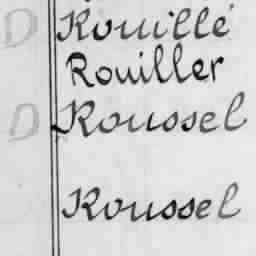 D Rouillé
Rouiller
D Roussel
Roussel